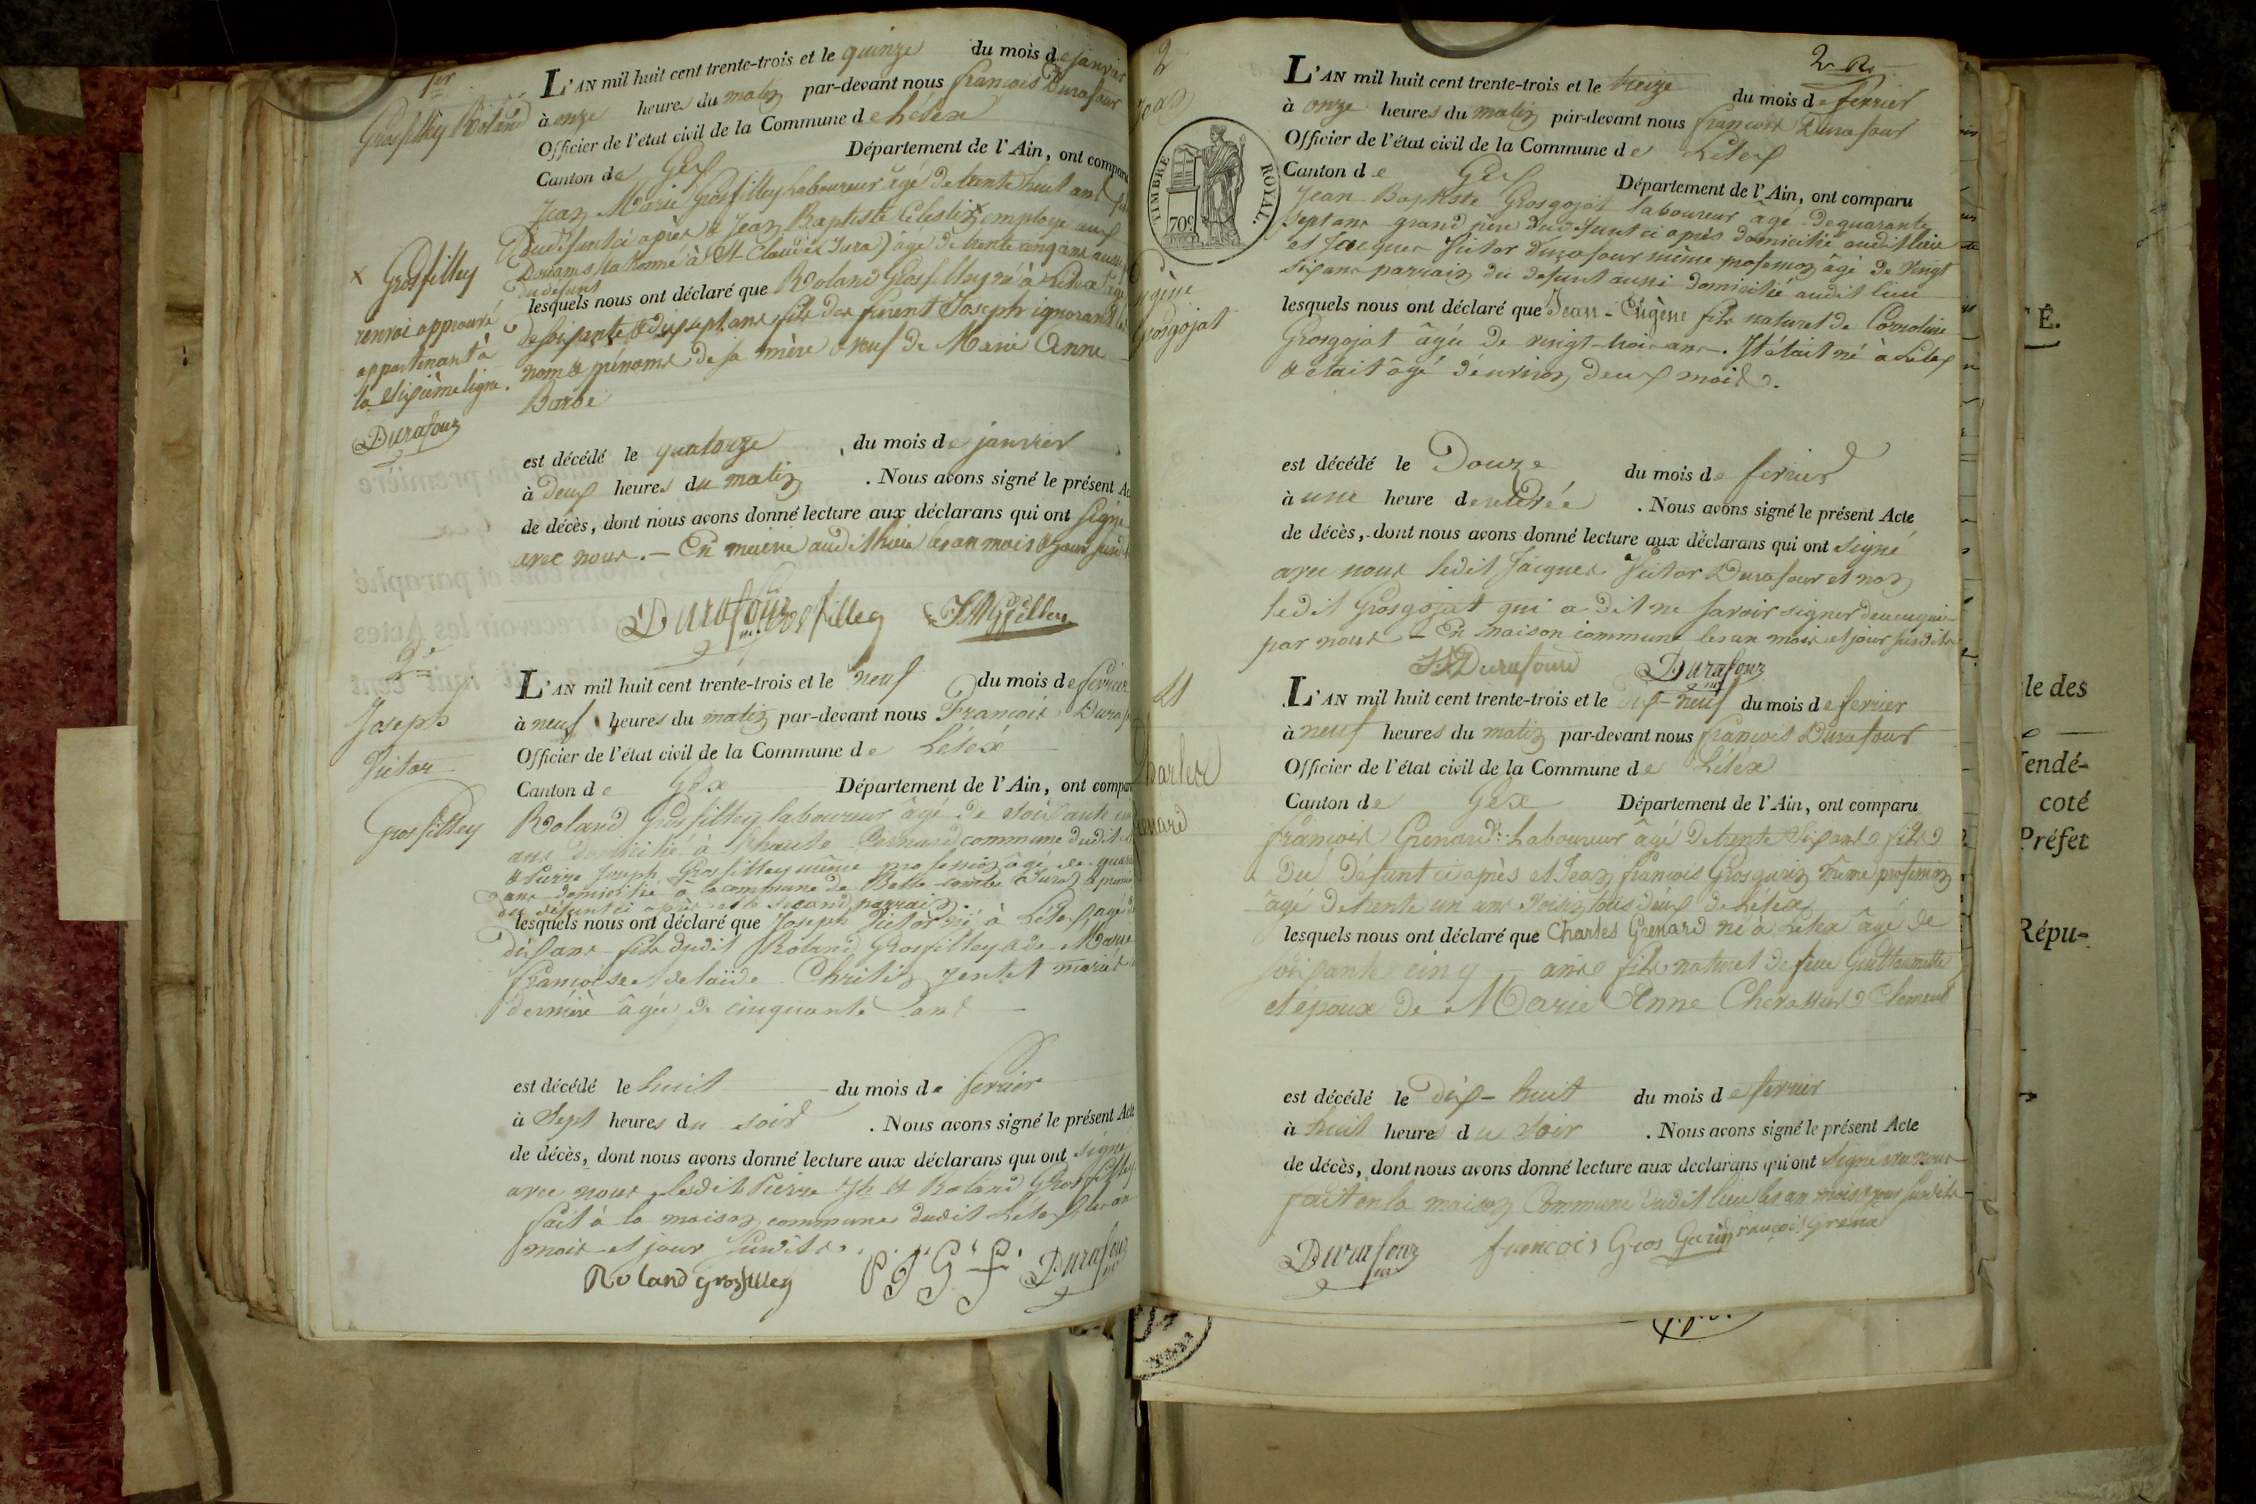 1er
Grosfilley Roland
L'AN mil huit cent trente-trois et le quinze du mois de janvier
à onze heures du matin par-devant nous françois Durafour
Officier de l'état civil de la Commune de Lélex
Canton de Gex Département de l'Ain, ont comparu
Jean Marie Grosfilley laboureur âgé de trente huit ans
du défunt ci après & Jean Baptiste Célestin x employé aux
Douanes à St Claude (Jura) âgé de trente cinq ans aussi
du défunt
lesquels nous ont déclaré que Roland Grosfilley né à Lélex âgé
de soixante & dix sept ans fils des furent Joseph ignorant les
nom & prénoms de sa mère veuf de Marie Anne
Barbe
x Grosfilley
renvoi approuvé
appartenant à
la sixième ligne.
Durafour
est décédé le quatorze du mois de janvier
à deux heures du matin . Nous avons signé le présent Acte
de décès, dont nous avons donné lecture aux déclarans qui ont signé
avec nous. — En mairie audit lieu les an mois & jour susdits
Durafour Grosfilley
2e
Joseph
Victor
Grosfilley
L'AN mil huit cent trente-trois et le neuf du mois de fevrier
à neuf heures du matin par-devant nous François Durafour
Officier de l'état civil de la Commune de Lélex
Canton de Gex Département de l'Ain, ont comparu
Roland Grosfilley laboureur âgé de soixante un
ans domicilié à commune dudit
& Pierre Joseph Grosfilley même profession âgé de
ans domicilié à la commune de Belle-combe (Jura) le premier
du défunt ci après et le second parrain.
lesquels nous ont déclaré que Joseph Victor né à Lélex, âgé de
dix ans fils dudit Roland Grosfilley & de Marie
françoise adelaïde Christin mariés
dernière âgée de cinquante ans
est décédé le huit du mois de fevrier
à sept heures du soir . Nous avons signé le présent Acte
de décès, dont nous avons donné lecture aux déclarans qui ont signé
avec nous ledit Pierre Jh & Roland Grosfilley
fait à la maison commune dudit Lélex, les an
mois et jour susdits.
Roland Grosfilley PJGf Durafour
2
2 R
TIMBRE ROYAL.
70c
Eugène
Grosgojat
L'AN mil huit cent trente-trois et le treize du mois de fevrier
à onze heures du matin par-devant nous françois Durafour
Officier de l'état civil de la Commune de Lélex
Canton de Gex Département de l'Ain, ont comparu
Jean Baptiste Grosgojat laboureur âgé de quarante
sept ans grand père du défunt ci après domicilié audit lieu
et Jacques Victor Durafour même profession âgé de vingt
six ans parrain du defunt aussi domicilié audit lieu
lesquels nous ont déclaré que Jean-Eugène fils naturel de Caroline
Grosgojat âgée de vingt-trois ans. Il était né à Lélex
& était âgé d'environ deux mois.
est décédé le Douze du mois de fevrier
à une heure de . Nous avons signé le présent Acte
de décès, dont nous avons donné lecture aux déclarans qui ont signé
avec nous ledit Jacques Victor Durafour et non
ledit Grosgojat qui a dit ne savoir signer de ce enquis
par nous — En maison commune les an mois et jour susdits
JVDurafour Durafour
Charles
Grenard
L'AN mil huit cent trente-trois et le dix-neuf du mois de fevrier
à neuf heures du matin par-devant nous françois Durafour
Officier de l'état civil de la Commune de Lélex
Canton de Gex Département de l'Ain, ont comparu
françois Grenard laboureur âgé de trente six ans fils
du défunt ci après et Jean françois Grosgurin même profession
âgé de trente un ans voisin tous deux de Lélex
lesquels nous ont déclaré que Charles Grenard né à Lélex âgé de
soixante cinq ans fils naturel de feue Guillaumette
et époux de Marie Anne Chevassus Clement
est décédé le dix-huit du mois de fevrier
à huit heures du soir . Nous avons signé le présent Acte
de décès, dont nous avons donné lecture aux déclarans qui ont signé avec nous
fait en la maison Commune dudit lieu les an mois & jour susdits
Durafour francois Gros Gurin françois Grenard
É.
le des
endé-
coté
Préfet
Répu-